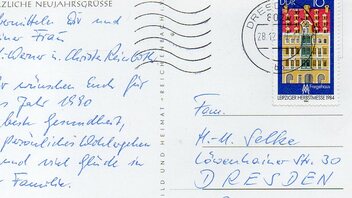 ZLICHE NEUJAHRSGRÜSSE
bermitteln Dir und
einer Frau
Werner u. Christa
wir wünschen Euch für
s Jahr 1990
beste Gesundheit,
persönliches Wohlergehen
und viel Glück in
r Familie.
ILD UND HEIMAT REICHENBACH
DRESDEN
80
28.12.
DDR
10
Fregehaus
LEIPZIGER HERBSTMESSE 1984
Fam.
H.-M. Selke
Löwenhainer Str. 30
DRESDEN